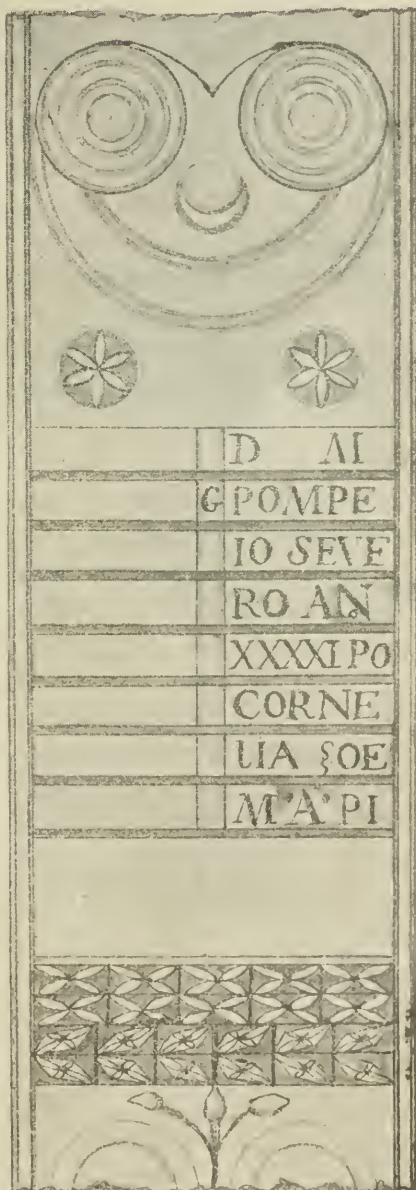 D M
G POMPE
IO SEVE
RO AN
XXXXI PO
CORNE
LIA SOE
M'A'PI